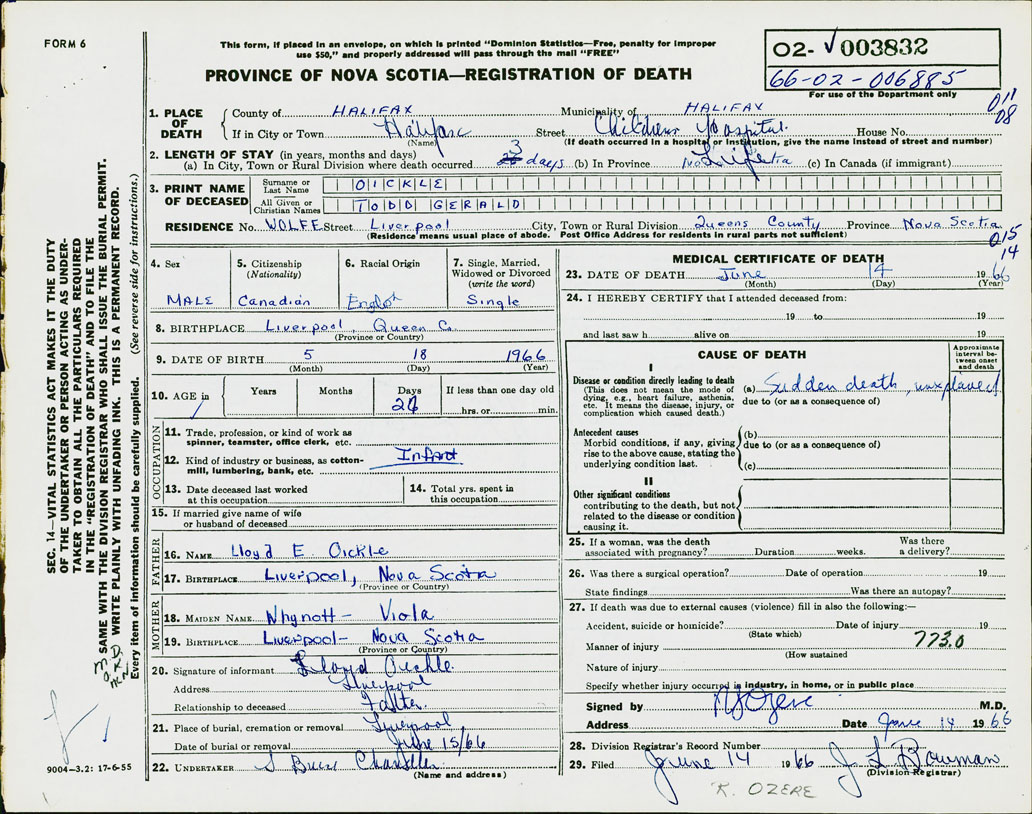 FORM 6
This form, if placed in an envelope, on which is printed "Dominion Statistics—Free, penalty for improper
use $50," and properly addressed will pass through the mail "FREE"
PROVINCE OF NOVA SCOTIA—REGISTRATION OF DEATH
02-✓003832
66-02-006885
For use of the Department only
011
08
1. PLACE OF DEATH
County of HALIFAX Municipality of HALIFAX
If in City or Town Halifax Street Childrens Hospital House No.
(Name) (If death occurred in a hospital or institution, give the name instead of street and number)
2. LENGTH OF STAY (in years, months and days)
(a) In City, Town or Rural Division where death occurred 3 days (b) In Province Life (c) In Canada (if immigrant)
3. PRINT NAME OF DECEASED
Surname or Last Name OICKLE
All Given or Christian Names TODD GERALD
RESIDENCE No. WOLFE Street Liverpool City, Town or Rural Division Queens County Province Nova Scotia
(Residence means usual place of abode. Post Office Address for residents in rural parts not sufficient)
015
14
4. Sex
MALE
5. Citizenship
(Nationality)
Canadian
6. Racial Origin
English
7. Single, Married,
Widowed or Divorced
(write the word)
Single
8. BIRTHPLACE Liverpool, Queen C.
(Province or Country)
9. DATE OF BIRTH 5 18 1966
(Month) (Day) (Year)
10. AGE in
Years Months Days If less than one day old
hrs. or min.
OCCUPATION
11. Trade, profession, or kind of work as
spinner, teamster, office clerk, etc.
12. Kind of industry or business, as cotton-
mill, lumbering, bank, etc. Infant
13. Date deceased last worked
at this occupation
14. Total yrs. spent in
this occupation
15. If married give name of wife
or husband of deceased
FATHER
16. NAME Lloyd E. Oickle
17. BIRTHPLACE Liverpool, Nova Scotia
(Province or Country)
MOTHER
18. MAIDEN NAME Whynott- Viola
19. BIRTHPLACE Liverpool- Nova Scotia
(Province or Country)
20. Signature of informant Lloyd Oickle
Address Liverpool
Relationship to deceased Father
21. Place of burial, cremation or removal Liverpool
Date of burial or removal June 15/66
22. UNDERTAKER S Chandler
(Name and address)
MEDICAL CERTIFICATE OF DEATH
23. DATE OF DEATH June 14 1966
(Month) (Day) (Year)
24. I HEREBY CERTIFY that I attended deceased from:
19 to 19
and last saw h alive on 19
CAUSE OF DEATH
Approximate
interval be-
tween onset
and death
I
Disease or condition directly leading to death
(This does not mean the mode of
dying, e.g., heart failure, asthenia,
etc. It means the disease, injury, or
complication which caused death.)
(a) Sudden death, unexplained
due to (or as a consequence of)
Antecedent causes
Morbid conditions, if any, giving
rise to the above cause, stating the
underlying condition last.
(b)
due to (or as a consequence of)
(c)
II
Other significant conditions
contributing to the death, but not
related to the disease or condition
causing it.
25. If a woman, was the death
associated with pregnancy? Duration weeks. Was there
a delivery?
26. Was there a surgical operation? Date of operation 19
State findings Was there an autopsy?
27. If death was due to external causes (violence) fill in also the following:—
Accident, suicide or homicide? Date of injury 19
(State which)
Manner of injury 773.0
(How sustained
Nature of injury
Specify whether injury occurred in industry, in home, or in public place
Signed by R J Ozere M.D.
Address Date June 14 1966
28. Division Registrar's Record Number
29. Filed June 14 1966 J L Bowman
(Division Registrar)
R. OZERE
SEC. 14—VITAL STATISTICS ACT MAKES IT THE DUTY
OF THE UNDERTAKER OR PERSON ACTING AS UNDER-
TAKER TO OBTAIN ALL THE PARTICULARS REQUIRED
IN THE "REGISTRATION OF DEATH" AND TO FILE THE
SAME WITH THE DIVISION REGISTRAR WHO SHALL ISSUE THE BURIAL PERMIT.
WRITE PLAINLY WITH UNFADING INK. THIS IS A PERMANENT RECORD.
Every item of information should be carefully supplied. (See reverse side for instructions.)
9004-3.2: 17-6-55